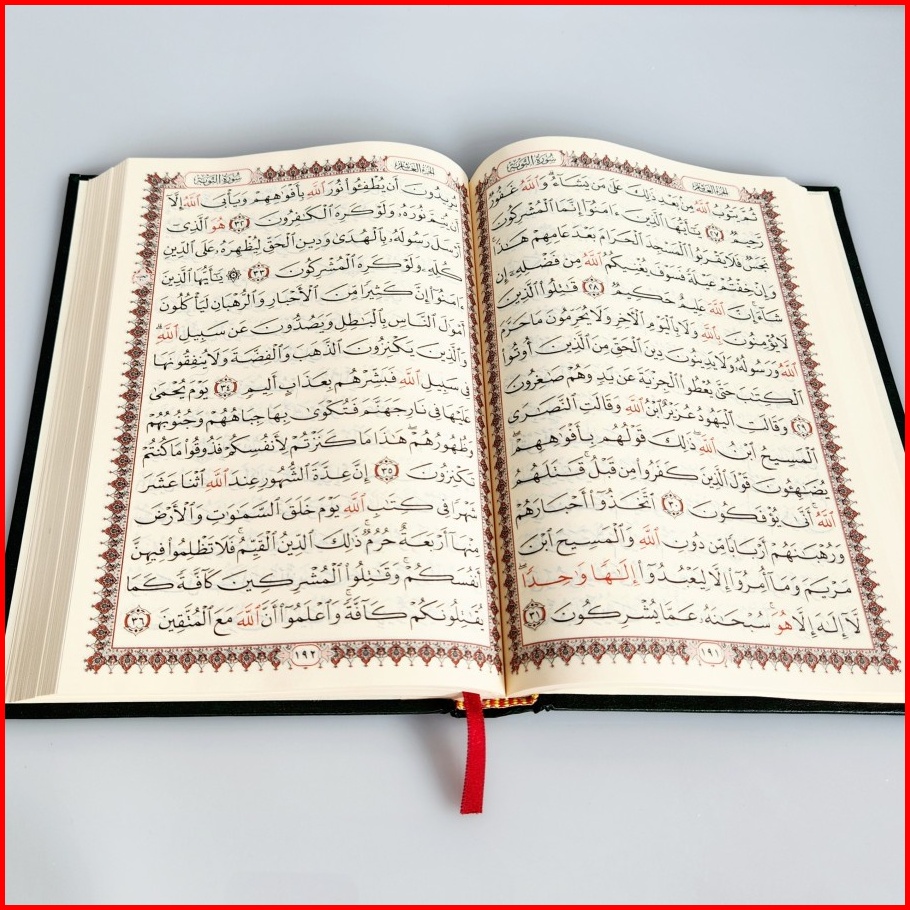 الجزء العاشر
سورة التوبة
ثُمَّ يَتُوبُ ٱللَّهُ مِنۢ بَعْدِ ذَٰلِكَ عَلَىٰ مَن يَشَآءُ ۗ وَٱللَّهُ غَفُورٌ
رَّحِيمٌ ﴿٢٧﴾ يَٰٓأَيُّهَا ٱلَّذِينَ ءَامَنُوٓا۟ إِنَّمَا ٱلْمُشْرِكُونَ
نَجَسٌ فَلَا يَقْرَبُوا۟ ٱلْمَسْجِدَ ٱلْحَرَامَ بَعْدَ عَامِهِمْ هَٰذَا ۚ
وَإِنْ خِفْتُمْ عَيْلَةً فَسَوْفَ يُغْنِيكُمُ ٱللَّهُ مِن فَضْلِهِۦٓ إِن
شَآءَ ۚ إِنَّ ٱللَّهَ عَلِيمٌ حَكِيمٌ ﴿٢٨﴾ قَٰتِلُوا۟ ٱلَّذِينَ
لَا يُؤْمِنُونَ بِٱللَّهِ وَلَا بِٱلْيَوْمِ ٱلْءَاخِرِ وَلَا يُحَرِّمُونَ مَا حَرَّمَ
ٱللَّهُ وَرَسُولُهُۥ وَلَا يَدِينُونَ دِينَ ٱلْحَقِّ مِنَ ٱلَّذِينَ أُوتُوا۟
ٱلْكِتَٰبَ حَتَّىٰ يُعْطُوا۟ ٱلْجِزْيَةَ عَن يَدٍ وَهُمْ صَٰغِرُونَ
﴿٢٩﴾ وَقَالَتِ ٱلْيَهُودُ عُزَيْرٌ ٱبْنُ ٱللَّهِ وَقَالَتِ ٱلنَّصَٰرَى
ٱلْمَسِيحُ ٱبْنُ ٱللَّهِ ۖ ذَٰلِكَ قَوْلُهُم بِأَفْوَٰهِهِمْ ۖ
يُضَٰهِـُٔونَ قَوْلَ ٱلَّذِينَ كَفَرُوا۟ مِن قَبْلُ ۚ قَٰتَلَهُمُ
ٱللَّهُ ۚ أَنَّىٰ يُؤْفَكُونَ ﴿٣٠﴾ ٱتَّخَذُوٓا۟ أَحْبَارَهُمْ
وَرُهْبَٰنَهُمْ أَرْبَابًا مِّن دُونِ ٱللَّهِ وَٱلْمَسِيحَ ٱبْنَ
مَرْيَمَ وَمَآ أُمِرُوٓا۟ إِلَّا لِيَعْبُدُوٓا۟ إِلَٰهًا وَٰحِدًا ۖ
لَّآ إِلَٰهَ إِلَّا هُوَ ۚ سُبْحَٰنَهُۥ عَمَّا يُشْرِكُونَ ﴿٣١﴾
١٩١
الجزء العاشر
سورة التوبة
يُرِيدُونَ أَن يُطْفِـُٔوا۟ نُورَ ٱللَّهِ بِأَفْوَٰهِهِمْ وَيَأْبَى ٱللَّهُ إِلَّآ
أَن يُتِمَّ نُورَهُۥ وَلَوْ كَرِهَ ٱلْكَٰفِرُونَ ﴿٣٢﴾ هُوَ ٱلَّذِىٓ
أَرْسَلَ رَسُولَهُۥ بِٱلْهُدَىٰ وَدِينِ ٱلْحَقِّ لِيُظْهِرَهُۥ عَلَى ٱلدِّينِ
كُلِّهِۦ وَلَوْ كَرِهَ ٱلْمُشْرِكُونَ ﴿٣٣﴾ ۞ يَٰٓأَيُّهَا ٱلَّذِينَ
ءَامَنُوٓا۟ إِنَّ كَثِيرًا مِّنَ ٱلْأَحْبَارِ وَٱلرُّهْبَانِ لَيَأْكُلُونَ
أَمْوَٰلَ ٱلنَّاسِ بِٱلْبَٰطِلِ وَيَصُدُّونَ عَن سَبِيلِ ٱللَّهِ ۗ
وَٱلَّذِينَ يَكْنِزُونَ ٱلذَّهَبَ وَٱلْفِضَّةَ وَلَا يُنفِقُونَهَا
فِى سَبِيلِ ٱللَّهِ فَبَشِّرْهُم بِعَذَابٍ أَلِيمٍ ﴿٣٤﴾ يَوْمَ يُحْمَىٰ
عَلَيْهَا فِى نَارِ جَهَنَّمَ فَتُكْوَىٰ بِهَا جِبَاهُهُمْ وَجُنُوبُهُمْ
وَظُهُورُهُمْ ۖ هَٰذَا مَا كَنَزْتُمْ لِأَنفُسِكُمْ فَذُوقُوا۟ مَا كُنتُمْ
تَكْنِزُونَ ﴿٣٥﴾ إِنَّ عِدَّةَ ٱلشُّهُورِ عِندَ ٱللَّهِ ٱثْنَا عَشَرَ
شَهْرًا فِى كِتَٰبِ ٱللَّهِ يَوْمَ خَلَقَ ٱلسَّمَٰوَٰتِ وَٱلْأَرْضَ
مِنْهَآ أَرْبَعَةٌ حُرُمٌ ۚ ذَٰلِكَ ٱلدِّينُ ٱلْقَيِّمُ ۚ فَلَا تَظْلِمُوا۟ فِيهِنَّ
أَنفُسَكُمْ ۚ وَقَٰتِلُوا۟ ٱلْمُشْرِكِينَ كَآفَّةً كَمَا
يُقَٰتِلُونَكُمْ كَآفَّةً ۚ وَٱعْلَمُوٓا۟ أَنَّ ٱللَّهَ مَعَ ٱلْمُتَّقِينَ ﴿٣٦﴾
١٩٢